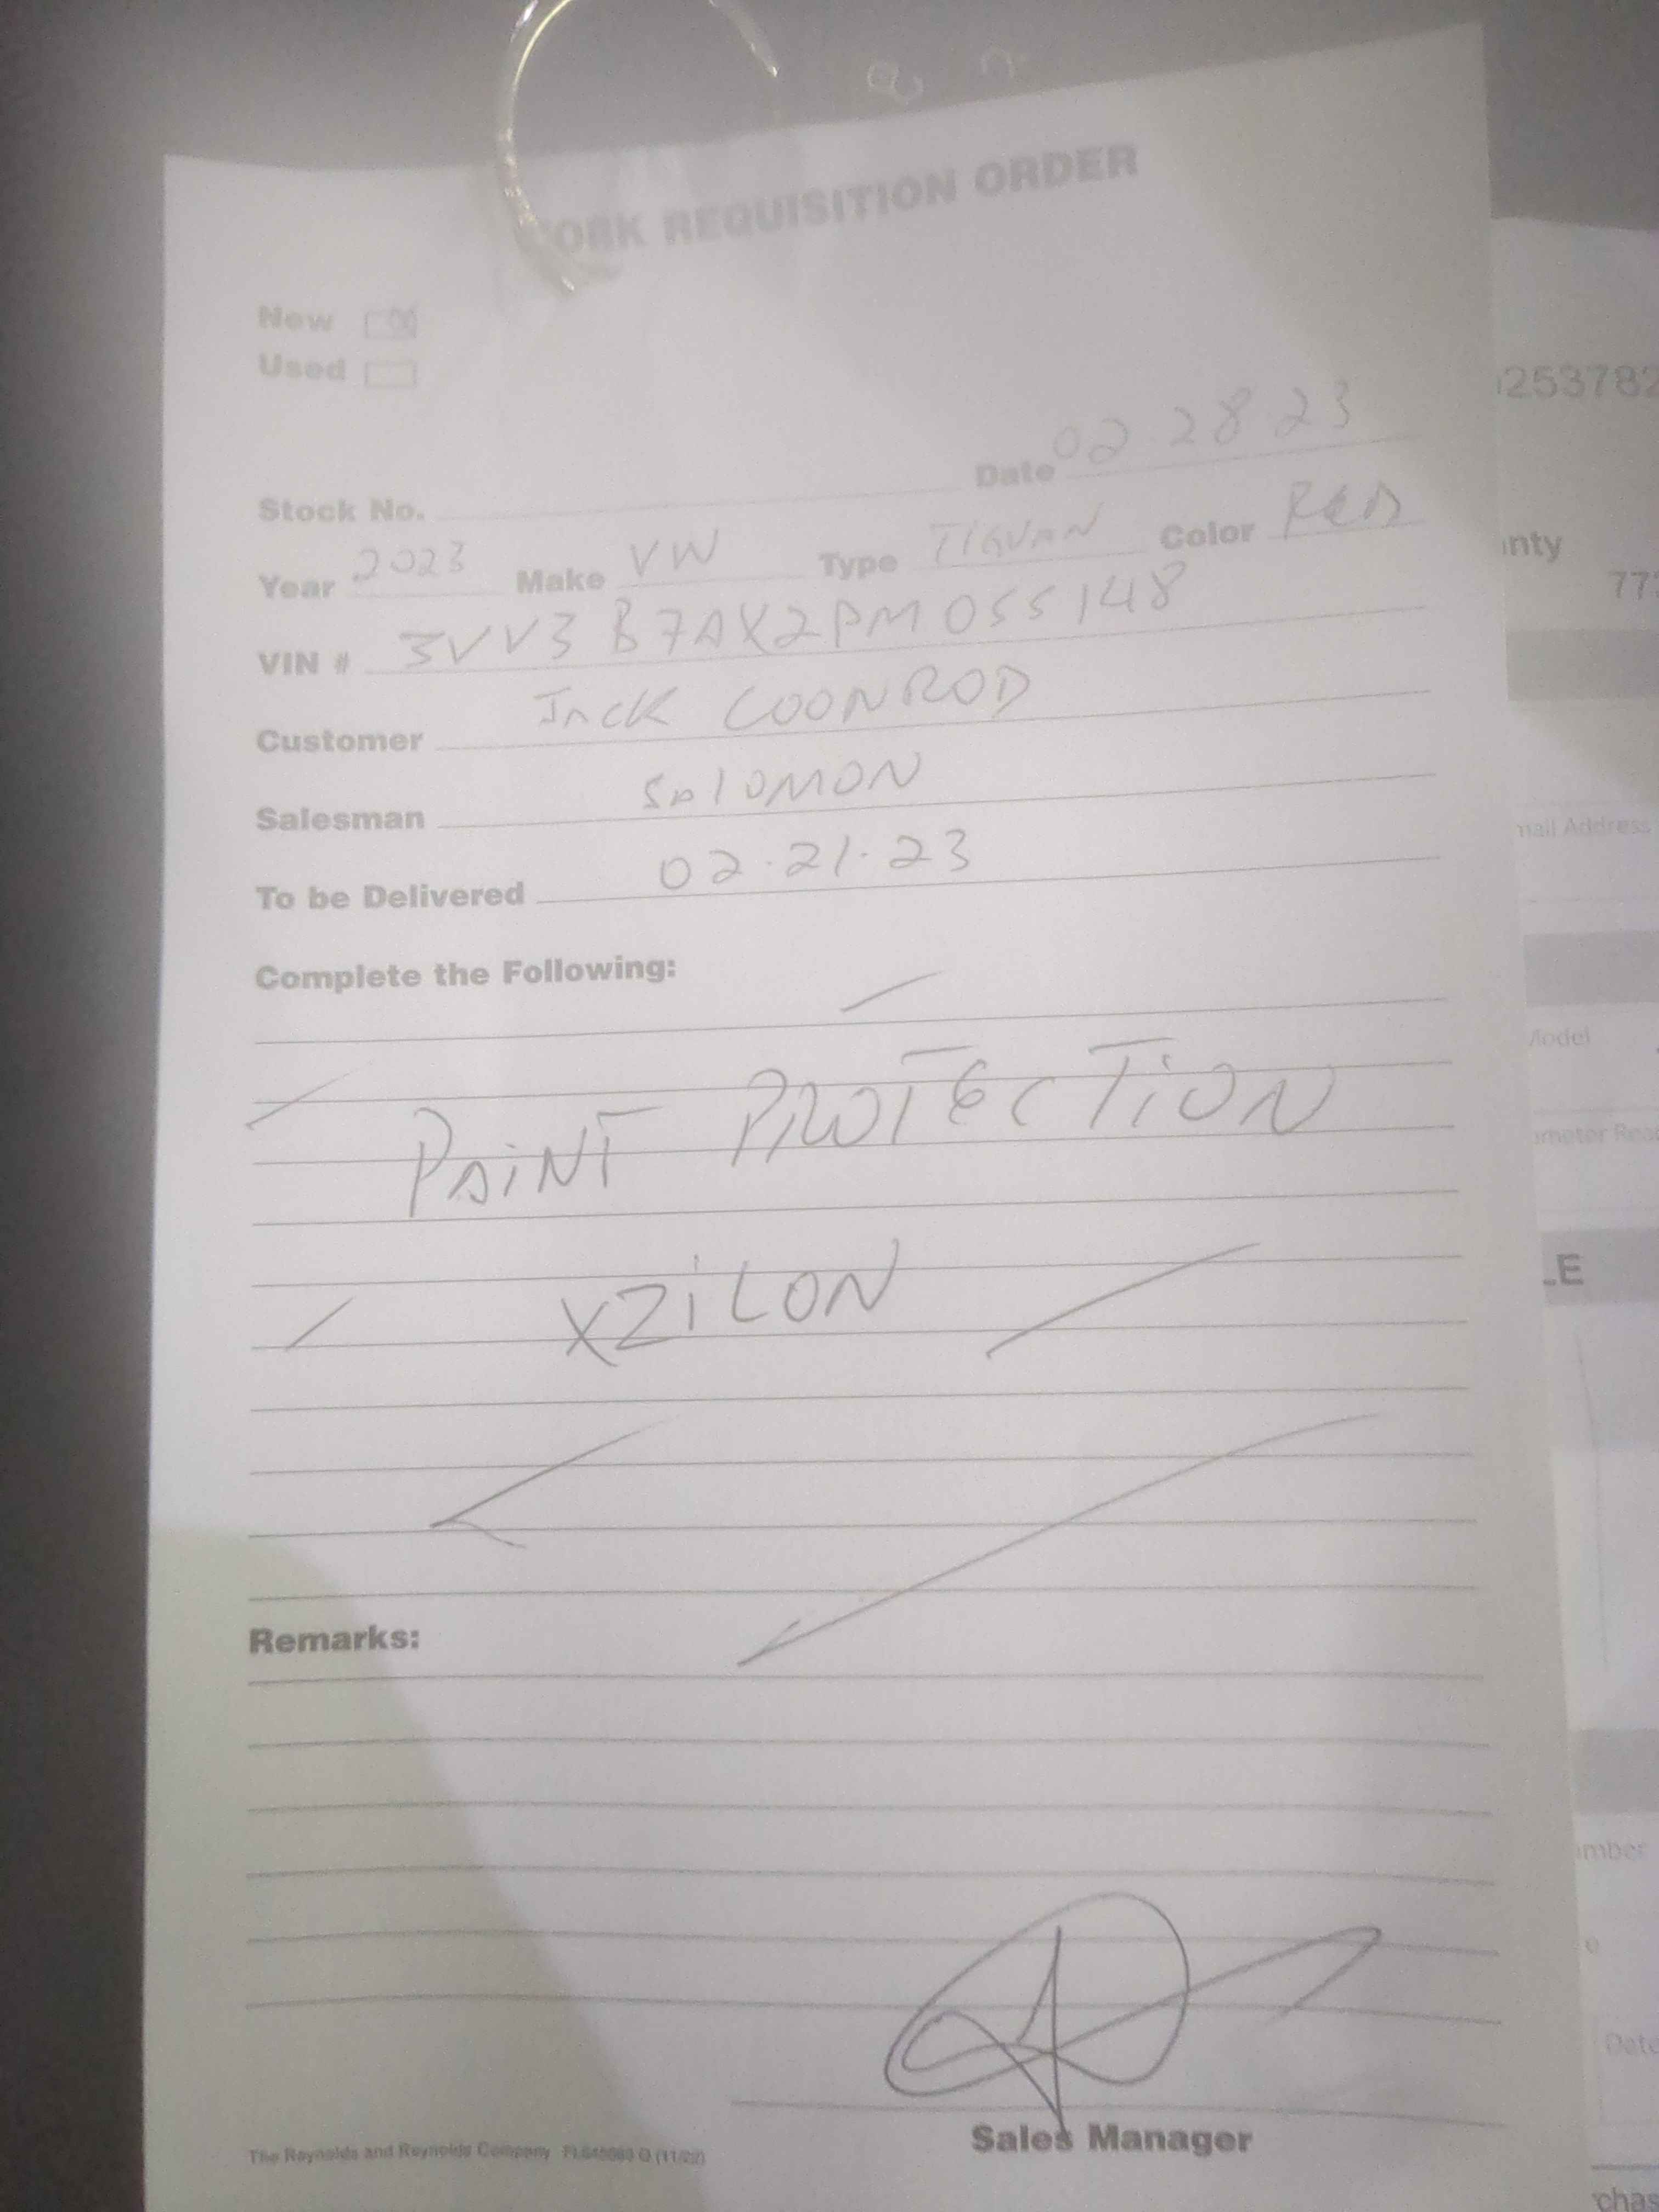 WORK REQUISITION ORDER
New
Used
Date 02 28 23
Stock No.
Year 2023 Make VW Type TIGUAN Color RED
VIN # 3VV3B7AX2PM055148
Customer JACK COONROD
Salesman SOLOMON
To be Delivered 02.21.23
Complete the Following:
PAINT PROTECTION
XZiLON
Remarks:
Sales Manager
The Reynolds and Reynolds Company
253782
nty
77
mail Address
Model
LE
mber
Date
chas